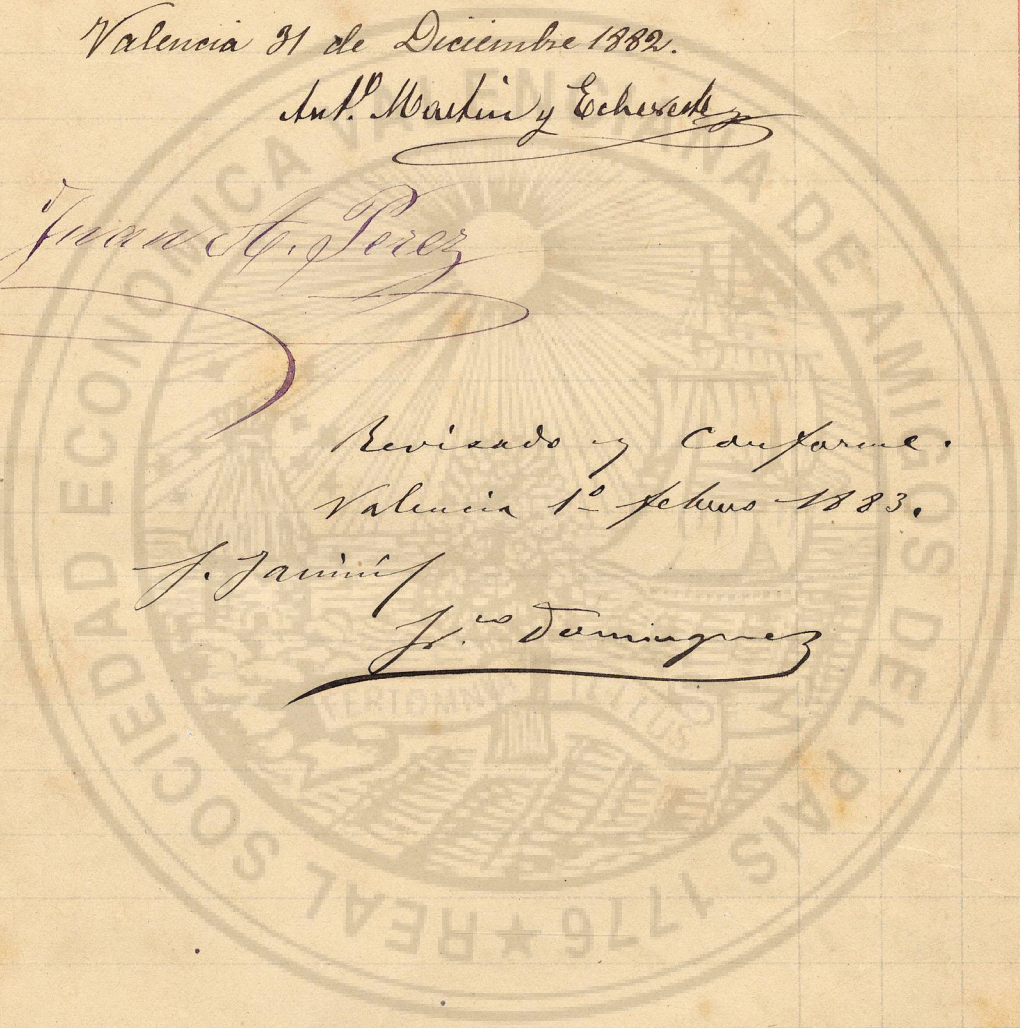 Valencia 31 de Diciembre 1882.
Antº. Martin y
Juan A. Perez
Revisado y Conforme.
Valencia 1º febrero 1883.
Frco Dominguez
REAL SOCIEDAD ECONOMICA VALENCIANA DE AMIGOS DEL PAIS 1776
FERT OMNIA TELLUS